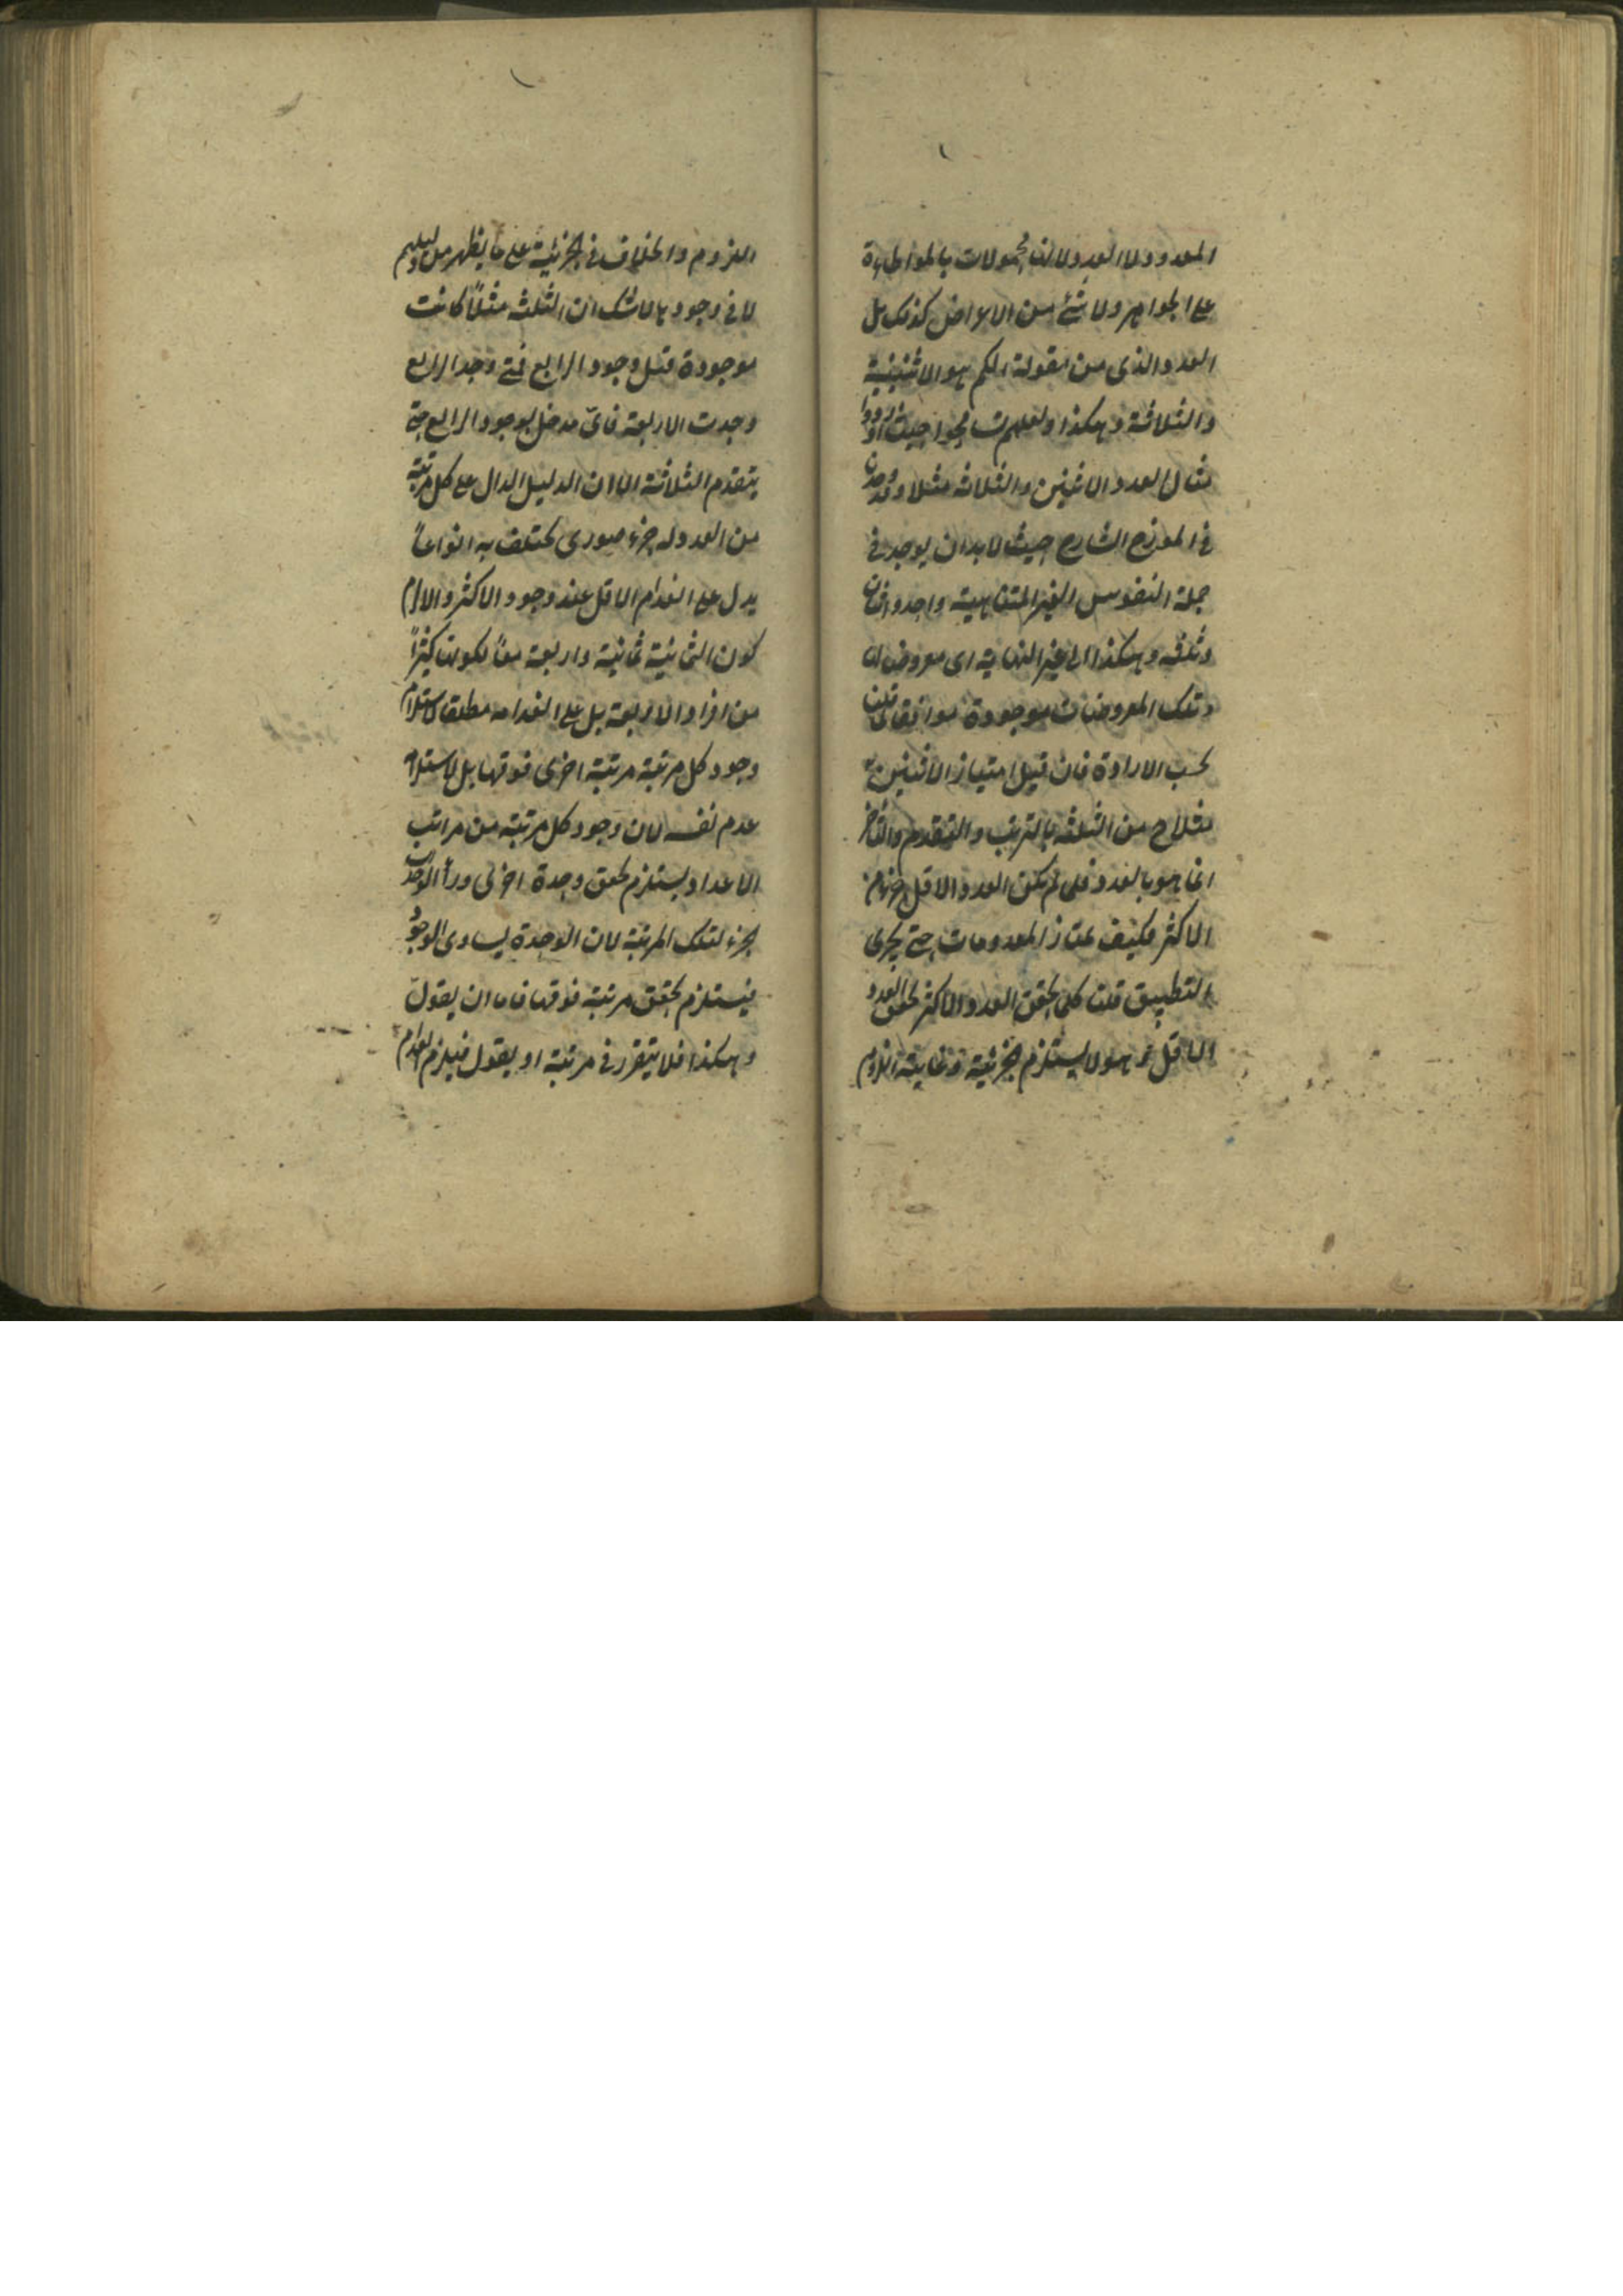 المعدود ولا العدد ولانها محمولات بالمواطاة
على الجواهر ولا شئ من الاعراض كذلك بل
العدد الذى من مقولة الكم هو الاثنينية
والثلاثة وهكذا ولعلهم تسامحوا حيث
مثال العدد الاثنين والثلاثة مثلا وقد
فى الموزع الشارح حيث لابد ان يوجد فى
جملة النفوس الغير المتناهية واحد واثنان
وثلثه وهكذا الى غير النهاية اى معروض
وتلك المعروضات موجودة
بحسب الارادة فان قيل امتياز الاثنين
مثلا ح من الثلثه بالترتب والتقدم والتاخر
انما هو بالعدد فلو لم يكن العدد الاقل جزء من
الاكثر فكيف يمتاز المعدومات حتى يجرى
التطبيق قلت كلما تحقق العدد الاكثر تحقق العدد
الاقل وهو لا يستلزم الجزئية فغاية اللزوم
اللزوم والخلاف فى الجزئية على ما يظهر من دليلهم
لا فى وجودها لاشك ان الثلثه مثلاً كانت
موجودة قبل وجود الرابع فمتى وجد الرابع
وجدت الاربعة فاىّ مدخل لوجود الرابع حتى
يتقدم الثلاثة الا ان الدليل الدال على كل مرتبة
من العدد له جزء صورى يختلف به انواعاً
يدل على انعدام الاقل عند وجود الاكثر والا لزم
كون الثمانية ثمانية واربعة معاً لكونها كثيراً
من افراد الاربعة بل على انعدامه مطلقا لاستلزام
وجود كل مرتبة مرتبة اخرى فوقها بل لاستلزام
عدم نفسه لان وجود كل مرتبة من مراتب
الاعداد يستلزم تحقق وحدة اخرى وراء الوحدات
لجزء لتلك المرتبة لان الوحدة يساوى الوجود
فيستلزم تحقق مرتبة فوقها فاما ان يقول
وهكذا فلا يتقرر فى مرتبة او يقول فيلزم انعدام